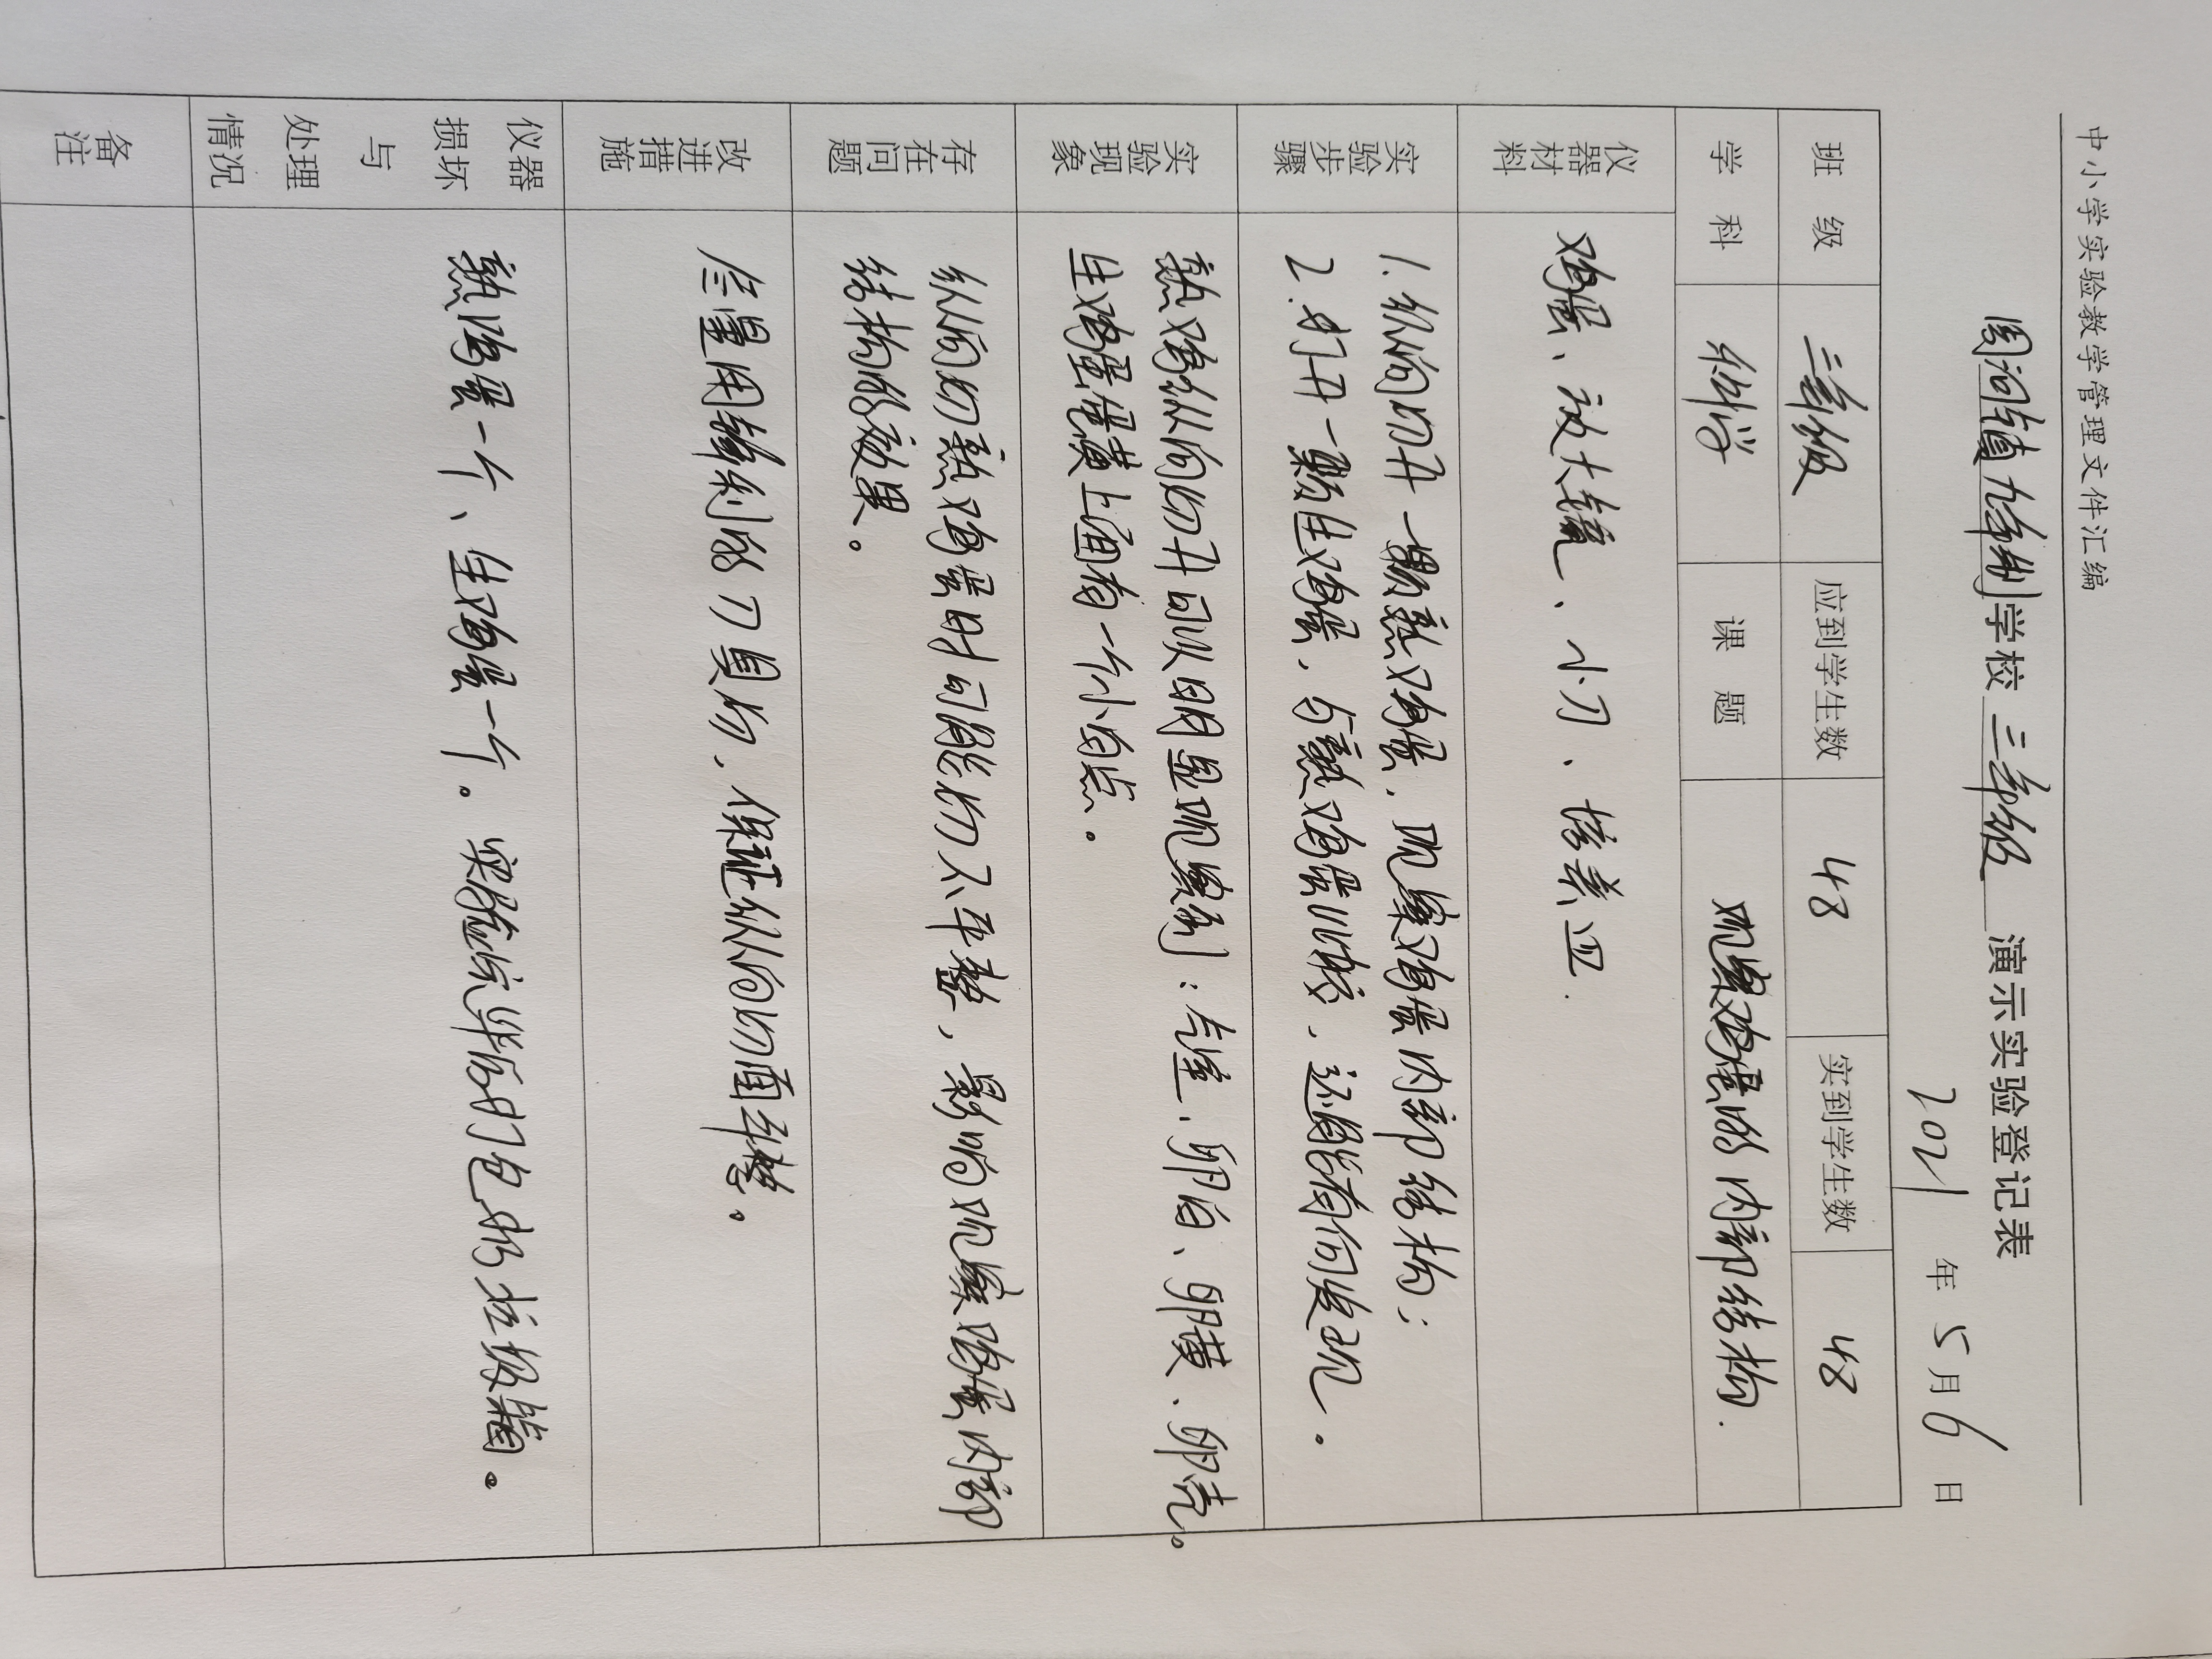 中小学实验教学管理文件汇编
周河镇九年制学校 三年级 演示实验登记表
2021 年 5 月 6 日
班 级 三年级 应到学生数 48 实到学生数 48
学 科 科学 课 题 观察鸡蛋的内部结构.
仪器材料 鸡蛋、放大镜、小刀、培养皿.
实验步骤
1.纵向切开一颗熟鸡蛋,观察鸡蛋内部结构;
2.打开一颗生鸡蛋,与熟鸡蛋比较,还能有何发现。
实验现象
熟鸡纵向切开可以明显观察到:气室、卵白、卵黄、卵壳。
生鸡蛋蛋黄上面有一个小白点。
存在问题
纵向切熟鸡蛋时可能切不平整,影响观察鸡蛋内部
结构的效果。
改进措施
尽量用锋利的刀具切,保证纵向切面平整。
仪器损坏与处理情况
熟鸡蛋一个、生鸡蛋一个。实验完毕后打包扔垃圾箱。
备注